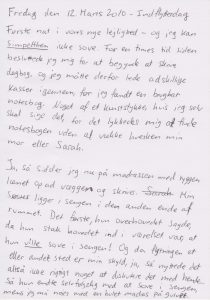 Fredag den 12. Marts 2010 - Indflytterdag
Første nat i vores nye lejlighed - og jeg kan
simpelthen ikke sove. For en times tid siden
besluttede jeg mig for at begynde at skrive
dagbog, og jeg måtte derfor lede adskillige
kasser igennem, før jeg fandt en brugbar
notesbog. Noget af et kunststykke, hvis jeg selv
skal sige det, for det lykkedes mig at finde
notesbogen uden at vække hverken min
mor eller Sarah.
Ja, så sidder jeg nu på madrassen med ryggen
lænet op ad væggen og skriver.
ligger i sengen i den anden ende af
rummet. Det første, hun overhovedet sagde,
da hun stak hovedet ind i værelset var, at
hun ville sove i sengen! Og da
eller andet sted er min skyld, ja, så nyttede det
altså ikke rigtigt noget at diskutere det med hende.
Så hun endte selvfølgelig med at sove i sengen,
mens jeg må nøjes med en bulet madras på gulvet